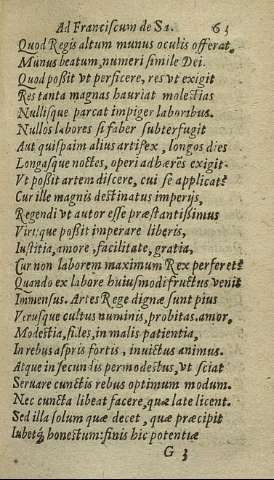 Ad Franciscum de Sa. 63
Quod Regis altum munus oculis offerat.
Munus beatum, numeri simile Dei.
Quod poßit vt perficere, res vt exigit
Res tanta magnas hauriat molestias
Nullisque parcat impiger laboribus.
Nullos labores si faber subterfugit
Aut quispiam alius artifex, longos dies
Longasque noctes, operi adhærẽs exigit
Vt poßit artem discere, cui se applicat
Cur ille magnis destinatus imperijs,
Regendi vt autor esse præstantißimus
Virisque poßit imperare liberis,
Iustitia, amore, facilitate, gratia,
Cur non laborem maximum Rex perferet
Quando ex labore huiusmodi fructus venit
Immensus. Artes Rege dignæ sunt pius
Verusque cultus numinis, probitas. amor,
Modestia, fides, in malis patientia,
In rebus aspris fortis, inuictus animus.
Atque in secundis permodestus, vt sciat
Seruare cunctis rebus optimum modum.
Nec cuncta libeat facere, quæ late licent.
Sed illa solum quæ decet, quæ præcipit
Iubetq́; honestum: finis hic potentiæ
G 3